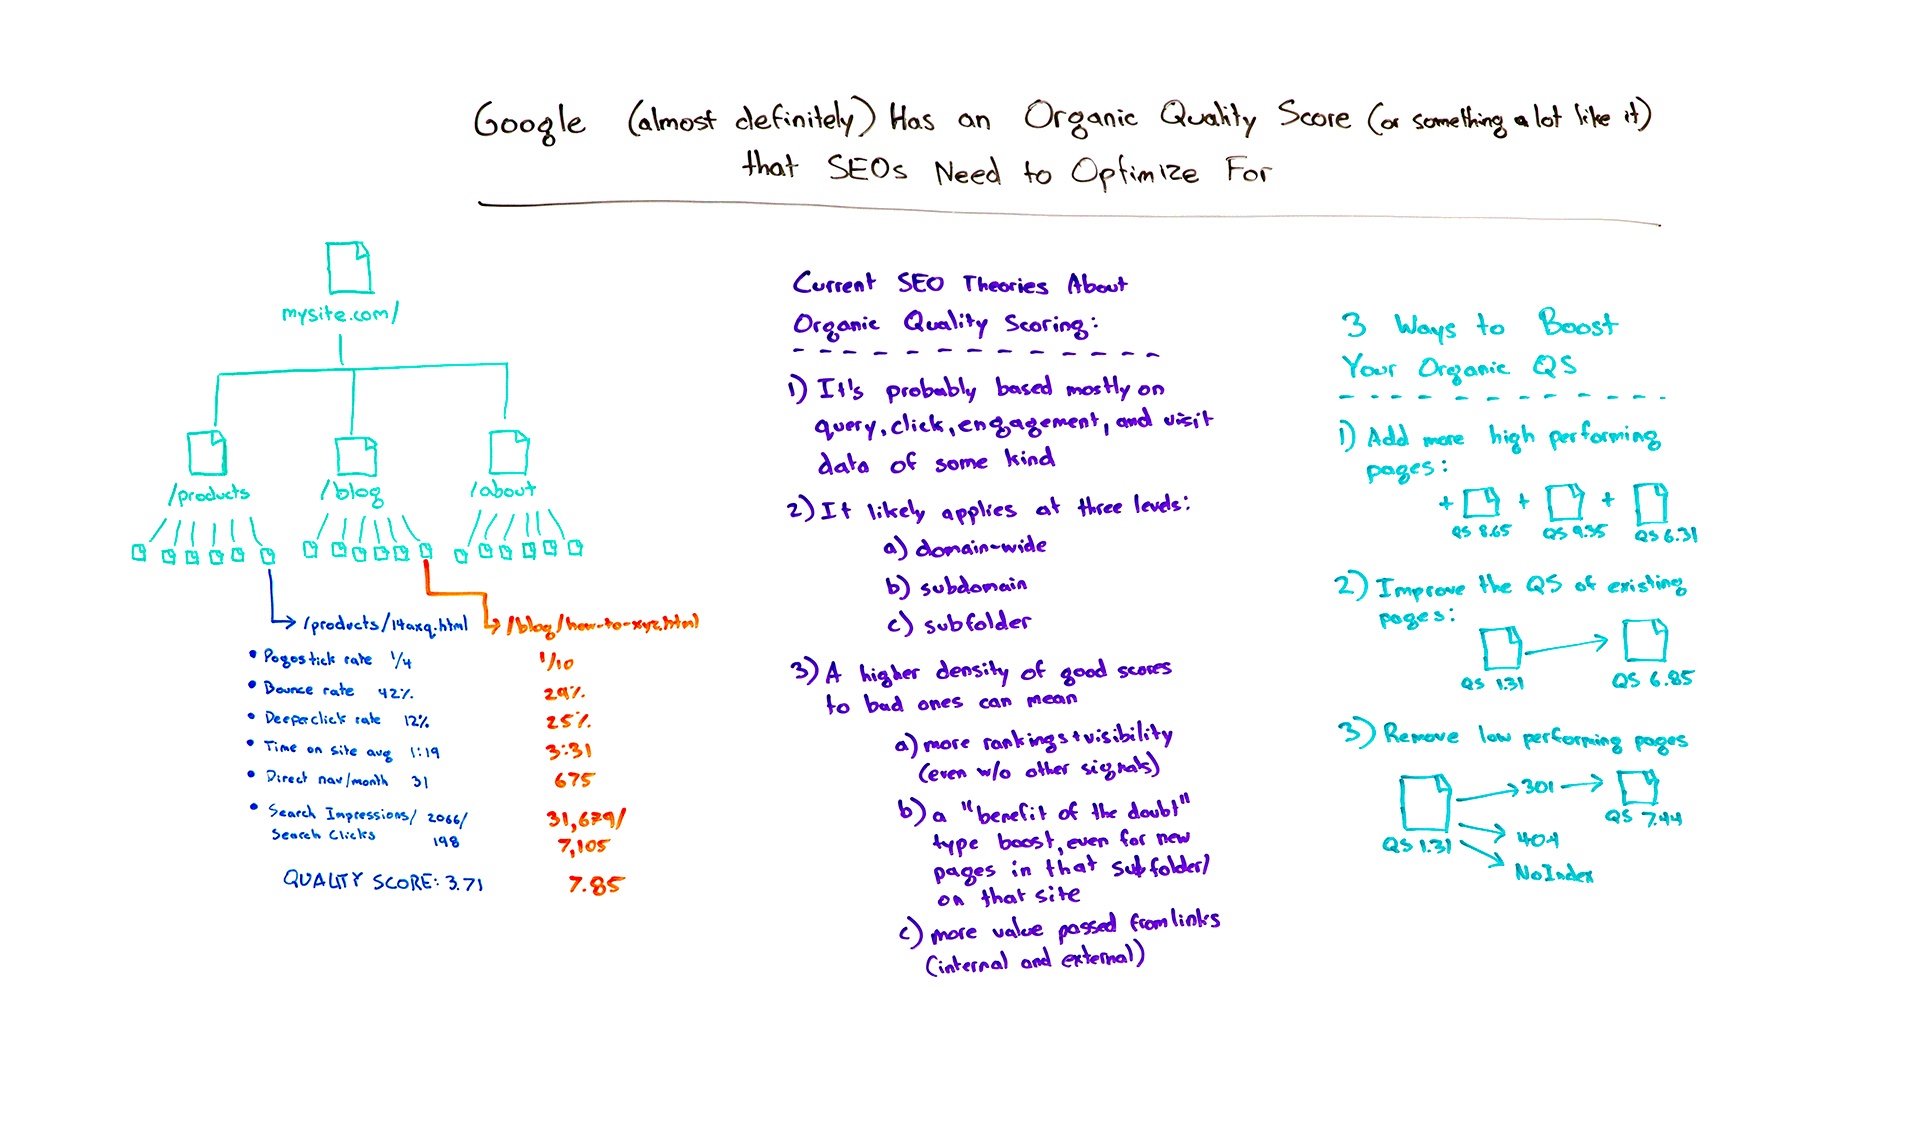 Google (almost definitely) Has an Organic Quality Score (or something a lot like it)
that SEOs Need to Optimize For
mysite.com/
/products
/blog
/about
/products/14axq.html
/blog/how-to-xyz.html
• Pogostick rate 1/4 1/10
• Bounce rate 42% 29%
• Deeper click rate 12% 25%
• Time on site avg 1:19 3:31
• Direct nav/month 31 675
• Search Impressions/ 2066/ 31,679/
Search Clicks 198 7,105
QUALITY SCORE: 3.71 7.85
Current SEO Theories About
Organic Quality Scoring:
1) It's probably based mostly on
query, click, engagement, and visit
data of some kind
2) It likely applies at three levels:
a) domain-wide
b) subdomain
c) subfolder
3) A higher density of good scores
to bad ones can mean
a) more rankings+visibility
(even w/o other signals)
b) a "benefit of the doubt"
type boost, even for new
pages in that subfolder/
on that site
c) more value passed from links
(internal and external)
3 Ways to Boost
Your Organic QS
1) Add more high performing
pages:
+ + +
QS 8.65 QS 9.35 QS 6.31
2) Improve the QS of existing
pages:
QS 1.31 QS 6.85
3) Remove low performing pages
301
QS 7.44
404
QS 1.31
NoIndex